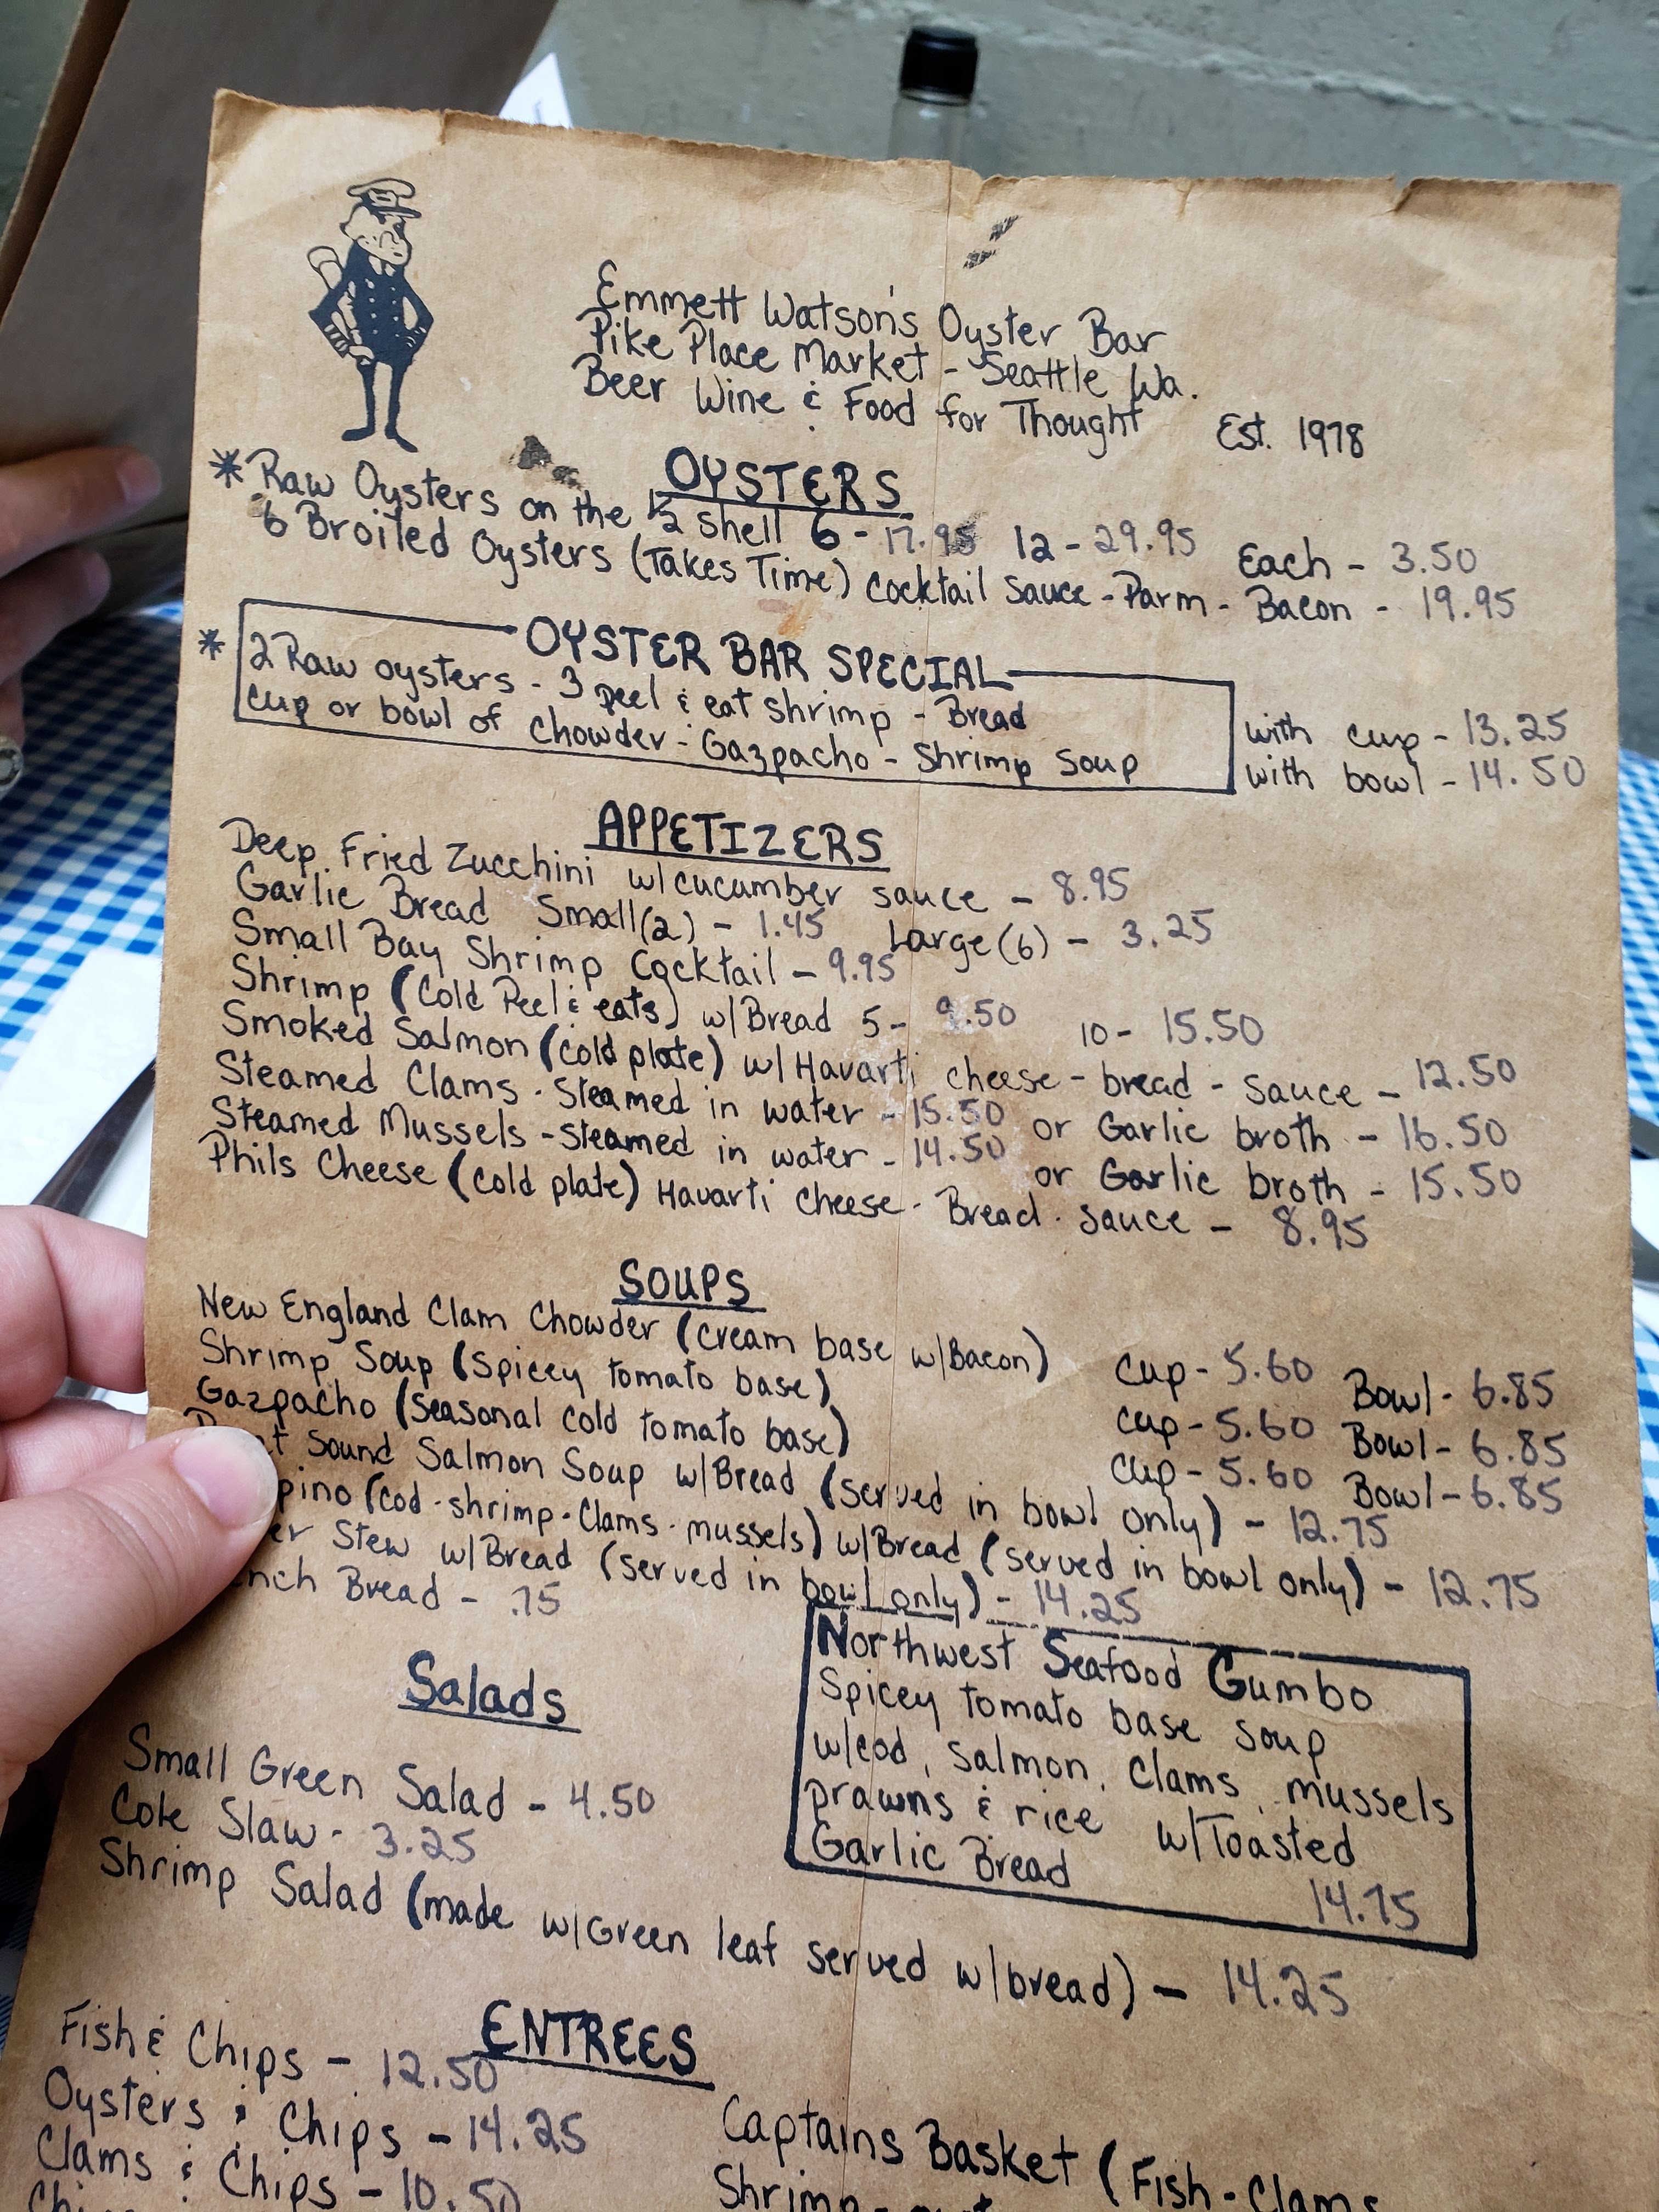 Emmett Watson's Oyster Bar
Pike Place Market - Seattle Wa.
Beer Wine & Food for Thought
Est. 1978
OYSTERS
* Raw Oysters on the 1/2 shell 6 - 17.95 12 - 29.95 Each - 3.50
6 Broiled Oysters (Takes Time) cocktail sauce - Parm - Bacon - 19.95
OYSTER BAR SPECIAL
* 2 Raw oysters - 3 peel & eat shrimp - Bread
cup or bowl of chowder - Gazpacho - Shrimp Soup
with cup - 13.25
with bowl - 14.50
APPETIZERS
Deep Fried Zucchini w/cucumber sauce - 8.95
Garlic Bread Small(2) - 1.45 Large(6) - 3.25
Small Bay Shrimp Cocktail - 9.95
Shrimp (Cold Peel & eats) w/Bread 5 - 9.50 10 - 15.50
Smoked Salmon (cold plate) w/Havarti cheese - bread - sauce - 12.50
Steamed Clams - Steamed in water - 15.50 or Garlic broth - 16.50
Steamed Mussels - steamed in water - 14.50 or Garlic broth - 15.50
Phils Cheese (cold plate) Havarti cheese - Bread - sauce - 8.95
SOUPS
New England Clam Chowder (cream base w/Bacon) cup - 5.60 Bowl - 6.85
Shrimp Soup (spicey tomato base) cup - 5.60 Bowl - 6.85
Gazpacho (seasonal cold tomato base) cup - 5.60 Bowl - 6.85
Sound Salmon Soup w/Bread (served in bowl only) - 12.75
pino (cod - shrimp - Clams - mussels) w/Bread (served in bowl only) - 12.75
er Stew w/Bread (served in bowl only) - 14.25
nch Bread - .75
Northwest Seafood Gumbo
Spicey tomato base soup
w/cod, salmon, clams, mussels
prawns & rice w/Toasted
Garlic Bread
14.75
Salads
Small Green Salad - 4.50
Cole Slaw - 3.25
Shrimp Salad (made w/Green leaf served w/bread) - 14.25
ENTREES
Fish & Chips - 12.50
Oysters & Chips - 14.25
Clams & Chips - 10.50
Captains Basket (Fish - Clams
Shrimp -